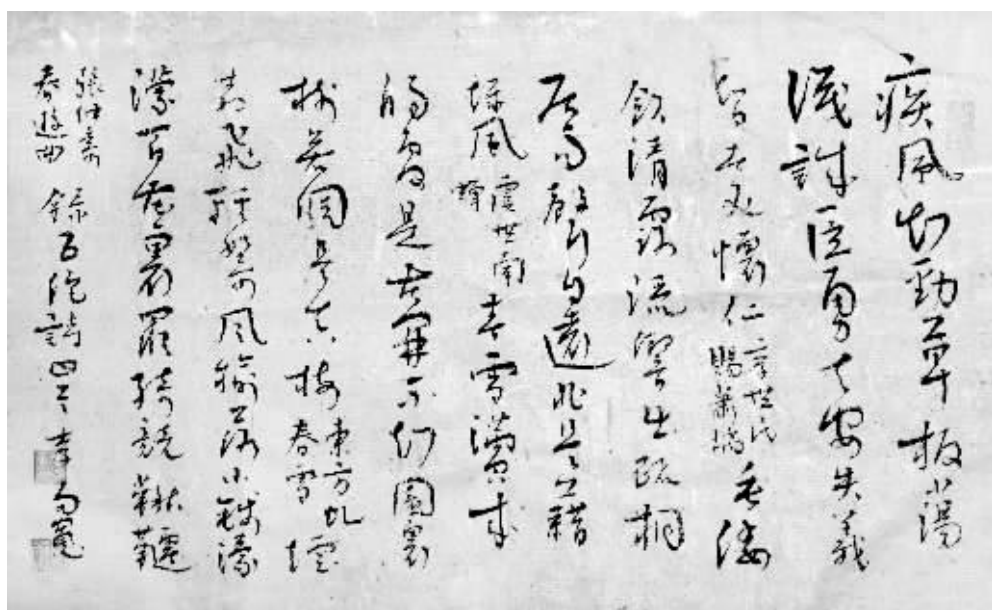 疾風知勁草板蕩
識誠臣勇夫安失義
智者必懷仁李世民賜蕭瑀垂緌
飲清露流響出疏桐
居高聲自遠非是藉
秋風虞世南蟬春雪滿空來
觸處是花開不知園裏
樹若個是真梅東方虬春雪煙
柳飛輕絮風榆落小錢濛
濛百花裏羅綺競鞦韆
張仲素春遊曲錄五絕詩四首